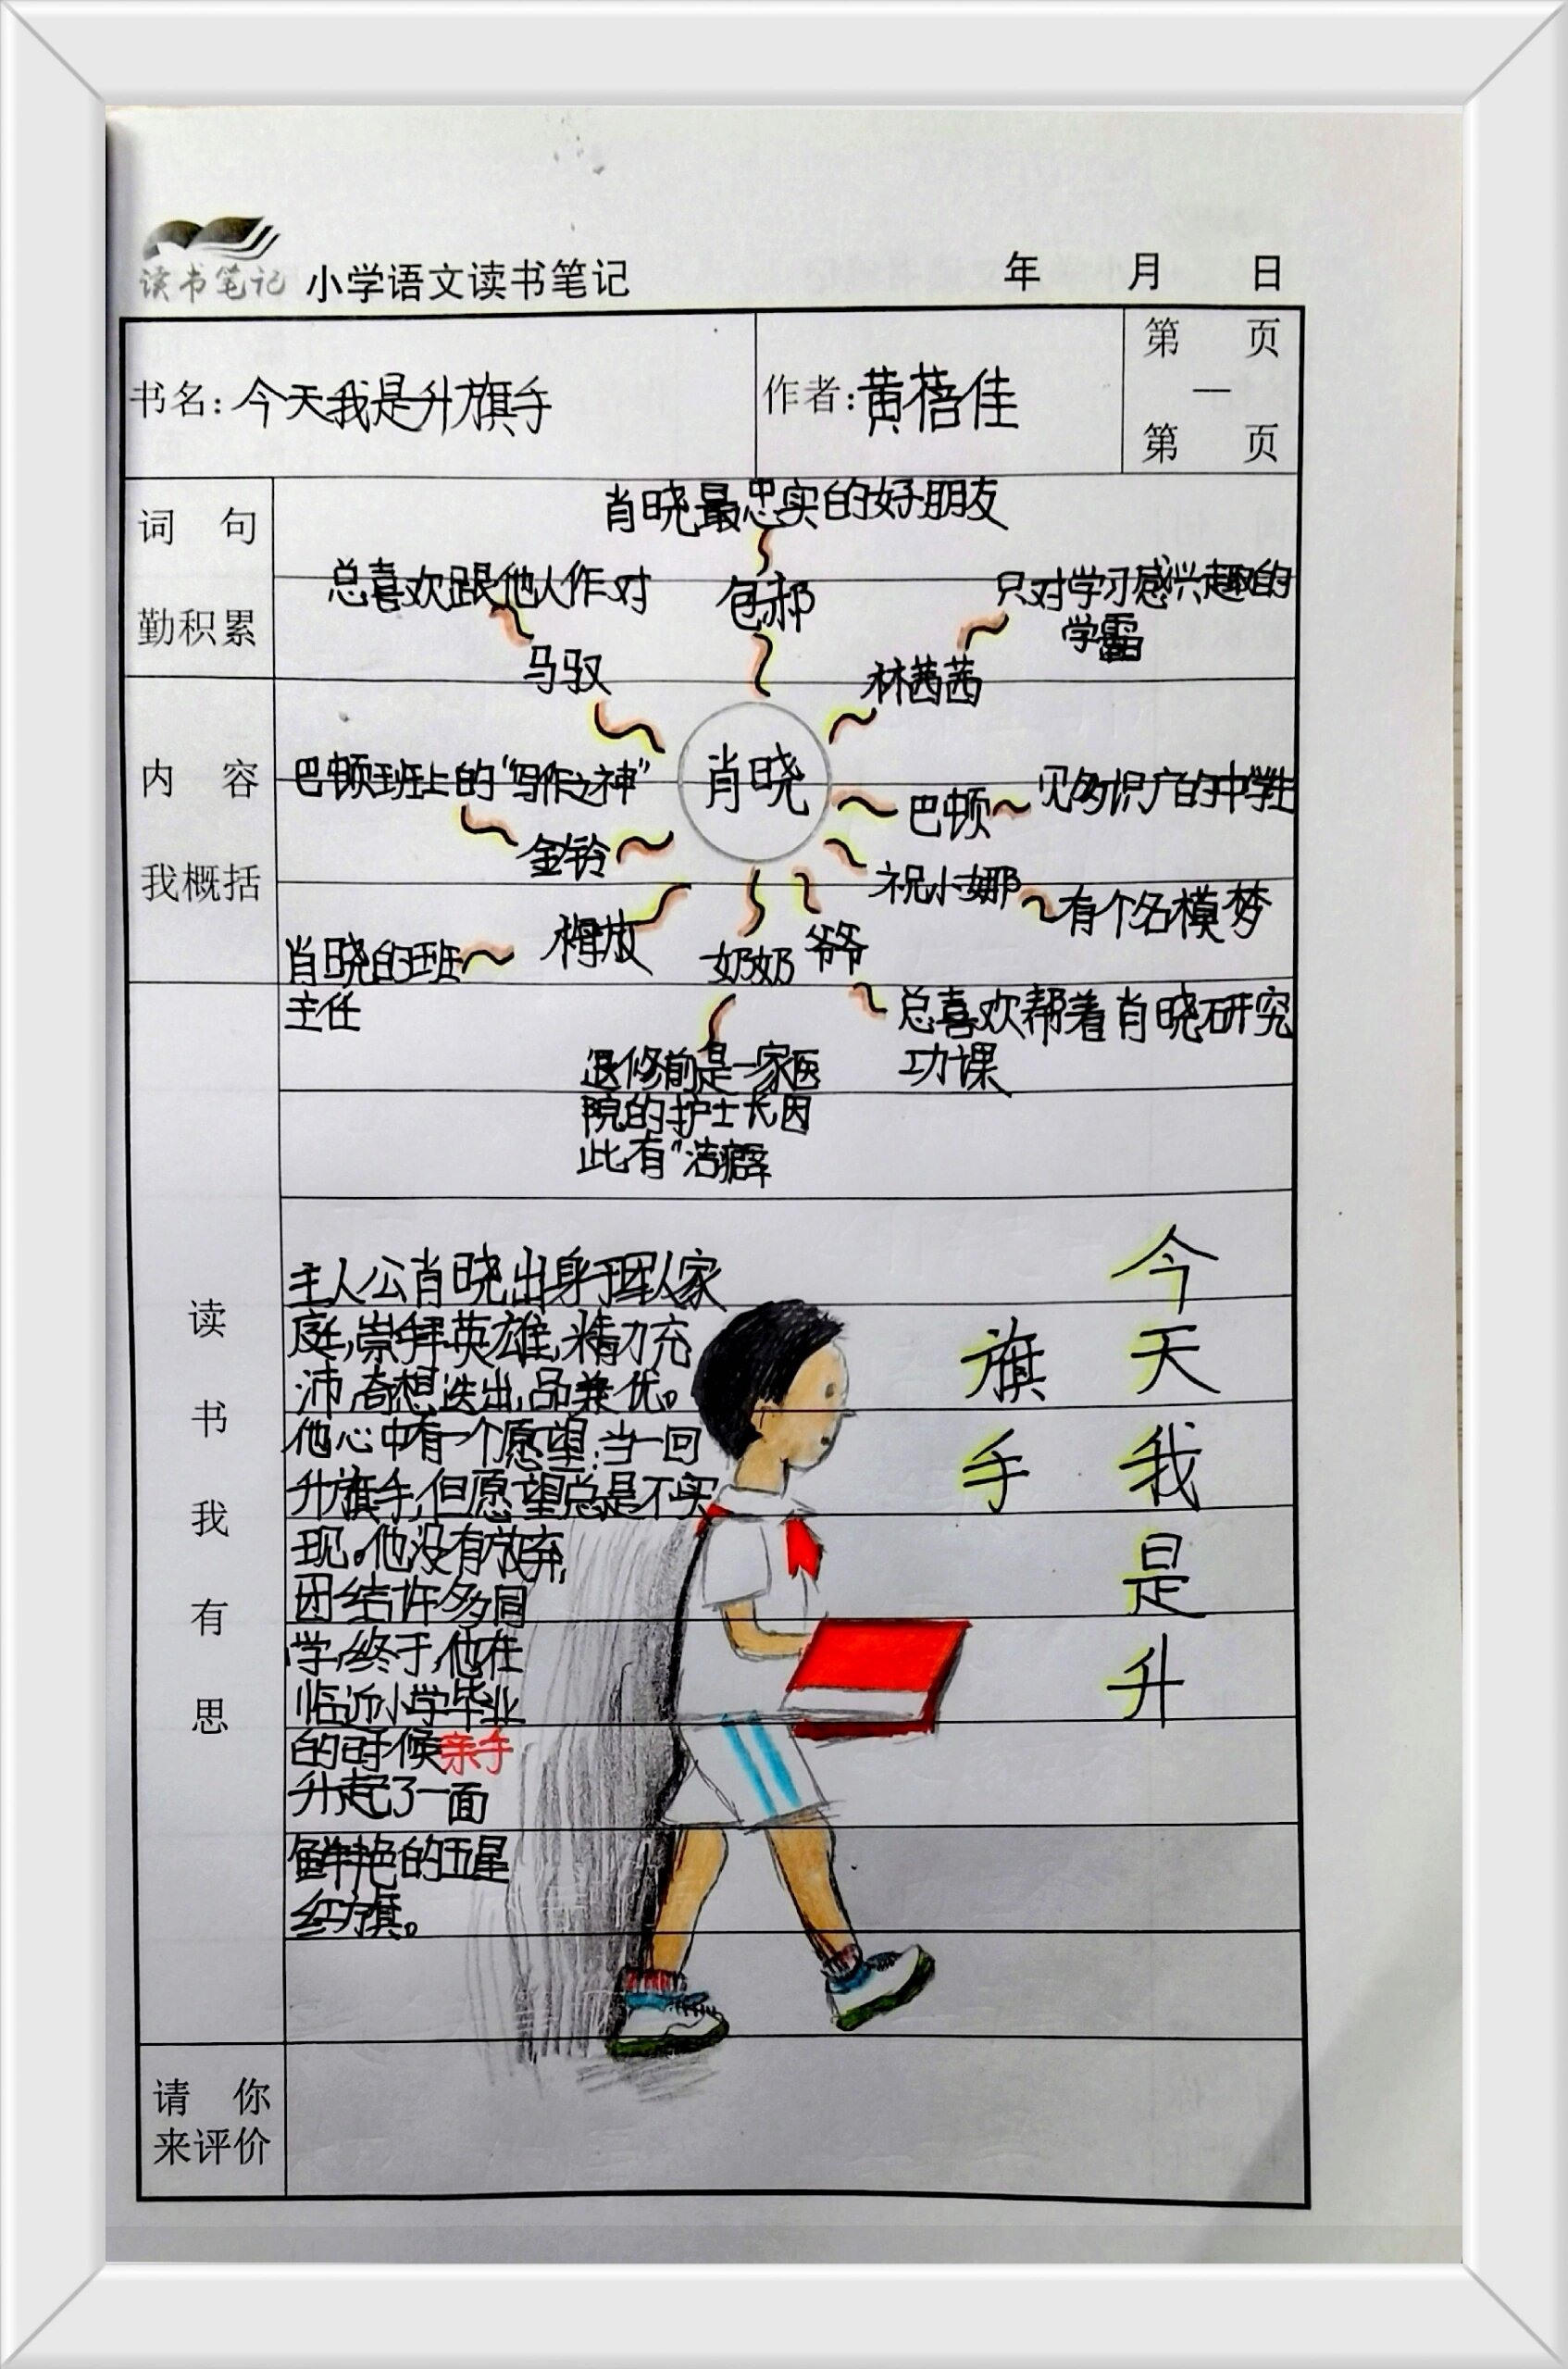 读书笔记 小学语文读书笔记 年 月 日
书名:今天我是升旗手
作者:黄蓓佳
第 页
一
第 页
词句
勤积累
肖晓最忠实的好朋友
包郝
总喜欢跟他人作对
马驭
只对学习感兴趣的
学霸
林茜茜
内容
我概括
肖晓
巴顿班上的“写作之神”
金铃
巴顿
见多识广的中学生
祝小娜
有个名模梦
梅放
肖晓的班
主任
奶奶
退修前是一家医
院的护士长因
此有“洁癖
爷爷
总喜欢帮着肖晓研究
功课
读书我有思
主人公肖晓出身于军队家
庭,崇拜英雄,精力充
沛,奇想迭出,品兼优。
他心中有一个愿望:当一回
升旗手,但愿望总是不实
现。他没有放弃,
团结许多同
学,终于,他在
临近小学毕业
的时候亲手
升起了一面
鲜艳的五星
红旗。
今天我是升
旗手
请你
来评价